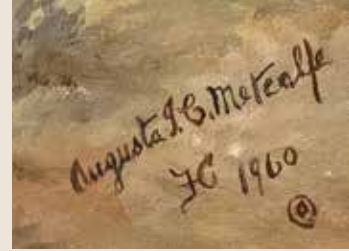 Augusta I. C. Metcalfe
FC 1960